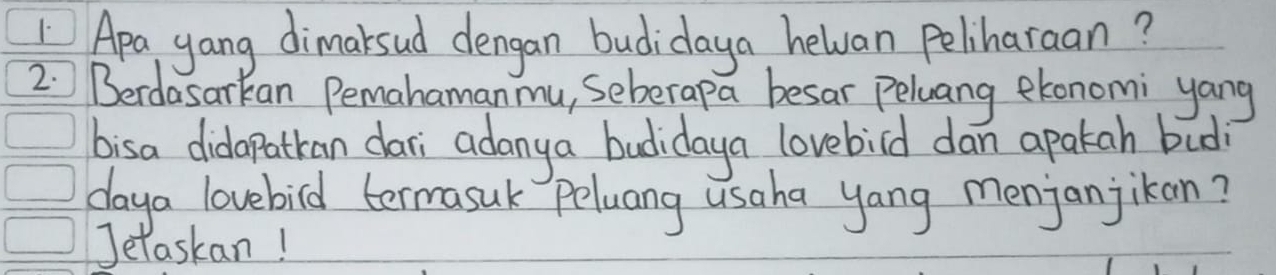 1. Apa yang dimaksud dengan budidaya hewan Peliharaan?
2. Berdasarkan Pemahamanmu, Seberapa besar Peluang ekonomi yang
bisa didapatkan dari adanya budidaya lovebird dan apakah budi
daya lovebird termasuk Peluang usaha yang menjanjikan?
Jelaskan!